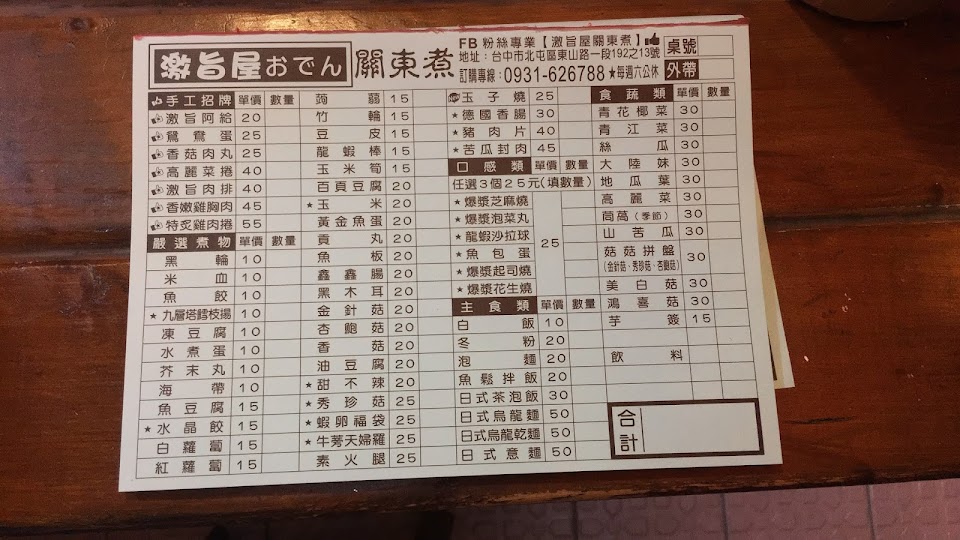 激旨屋おでん 關東煮
FB粉絲專業【激旨屋關東煮】
地址：台中市北屯區東山路一段192之13號
訂購專線：0931-626788 ★每週六公休
桌號
外帶
手工招牌 單價 數量
激旨阿給 20
鴛鴦蛋 25
香菇肉丸 25
高麗菜捲 40
激旨肉排 40
香嫩雞胸肉 45
特炙雞肉捲 55
嚴選煮物 單價 數量
黑輪 10
米血 10
魚餃 10
★九層塔鱈枝揚 10
凍豆腐 10
水煮蛋 10
芥末丸 10
海帶 10
魚豆腐 15
★水晶餃 15
白蘿蔔 15
紅蘿蔔 15
蒟蒻 15
竹輪 15
豆皮 15
龍蝦棒 15
玉米筍 15
百頁豆腐 20
★玉米 20
黃金魚蛋 20
貢丸 20
魚板 20
鑫鑫腸 20
黑木耳 20
金針菇 20
杏鮑菇 20
香菇 20
油豆腐 20
★甜不辣 20
★秀珍菇 25
★蝦卵福袋 25
★牛蒡天婦羅 25
素火腿 25
玉子燒 25
★德國香腸 30
★豬肉片 40
★苦瓜封肉 45
口感類 單價 數量
任選3個25元(填數量)
★爆漿芝麻燒
★爆漿泡菜丸
★龍蝦沙拉球
★魚包蛋
★爆漿起司燒
★爆漿花生燒
25
主食類 單價 數量
白飯 10
冬粉 20
泡麵 20
魚鬆拌飯 20
日式茶泡飯 30
日式烏龍麵 50
日式烏龍乾麵 50
日式意麵 50
食蔬類 單價 數量
青花椰菜 30
青江菜 30
絲瓜 30
大陸妹 30
地瓜葉 30
高麗菜 30
茼萵(季節) 30
山苦瓜 30
菇菇拼盤 30
(金針菇、秀珍菇、杏鮑菇)
美白菇 30
鴻喜菇 30
芋簽 15
飲料
合計